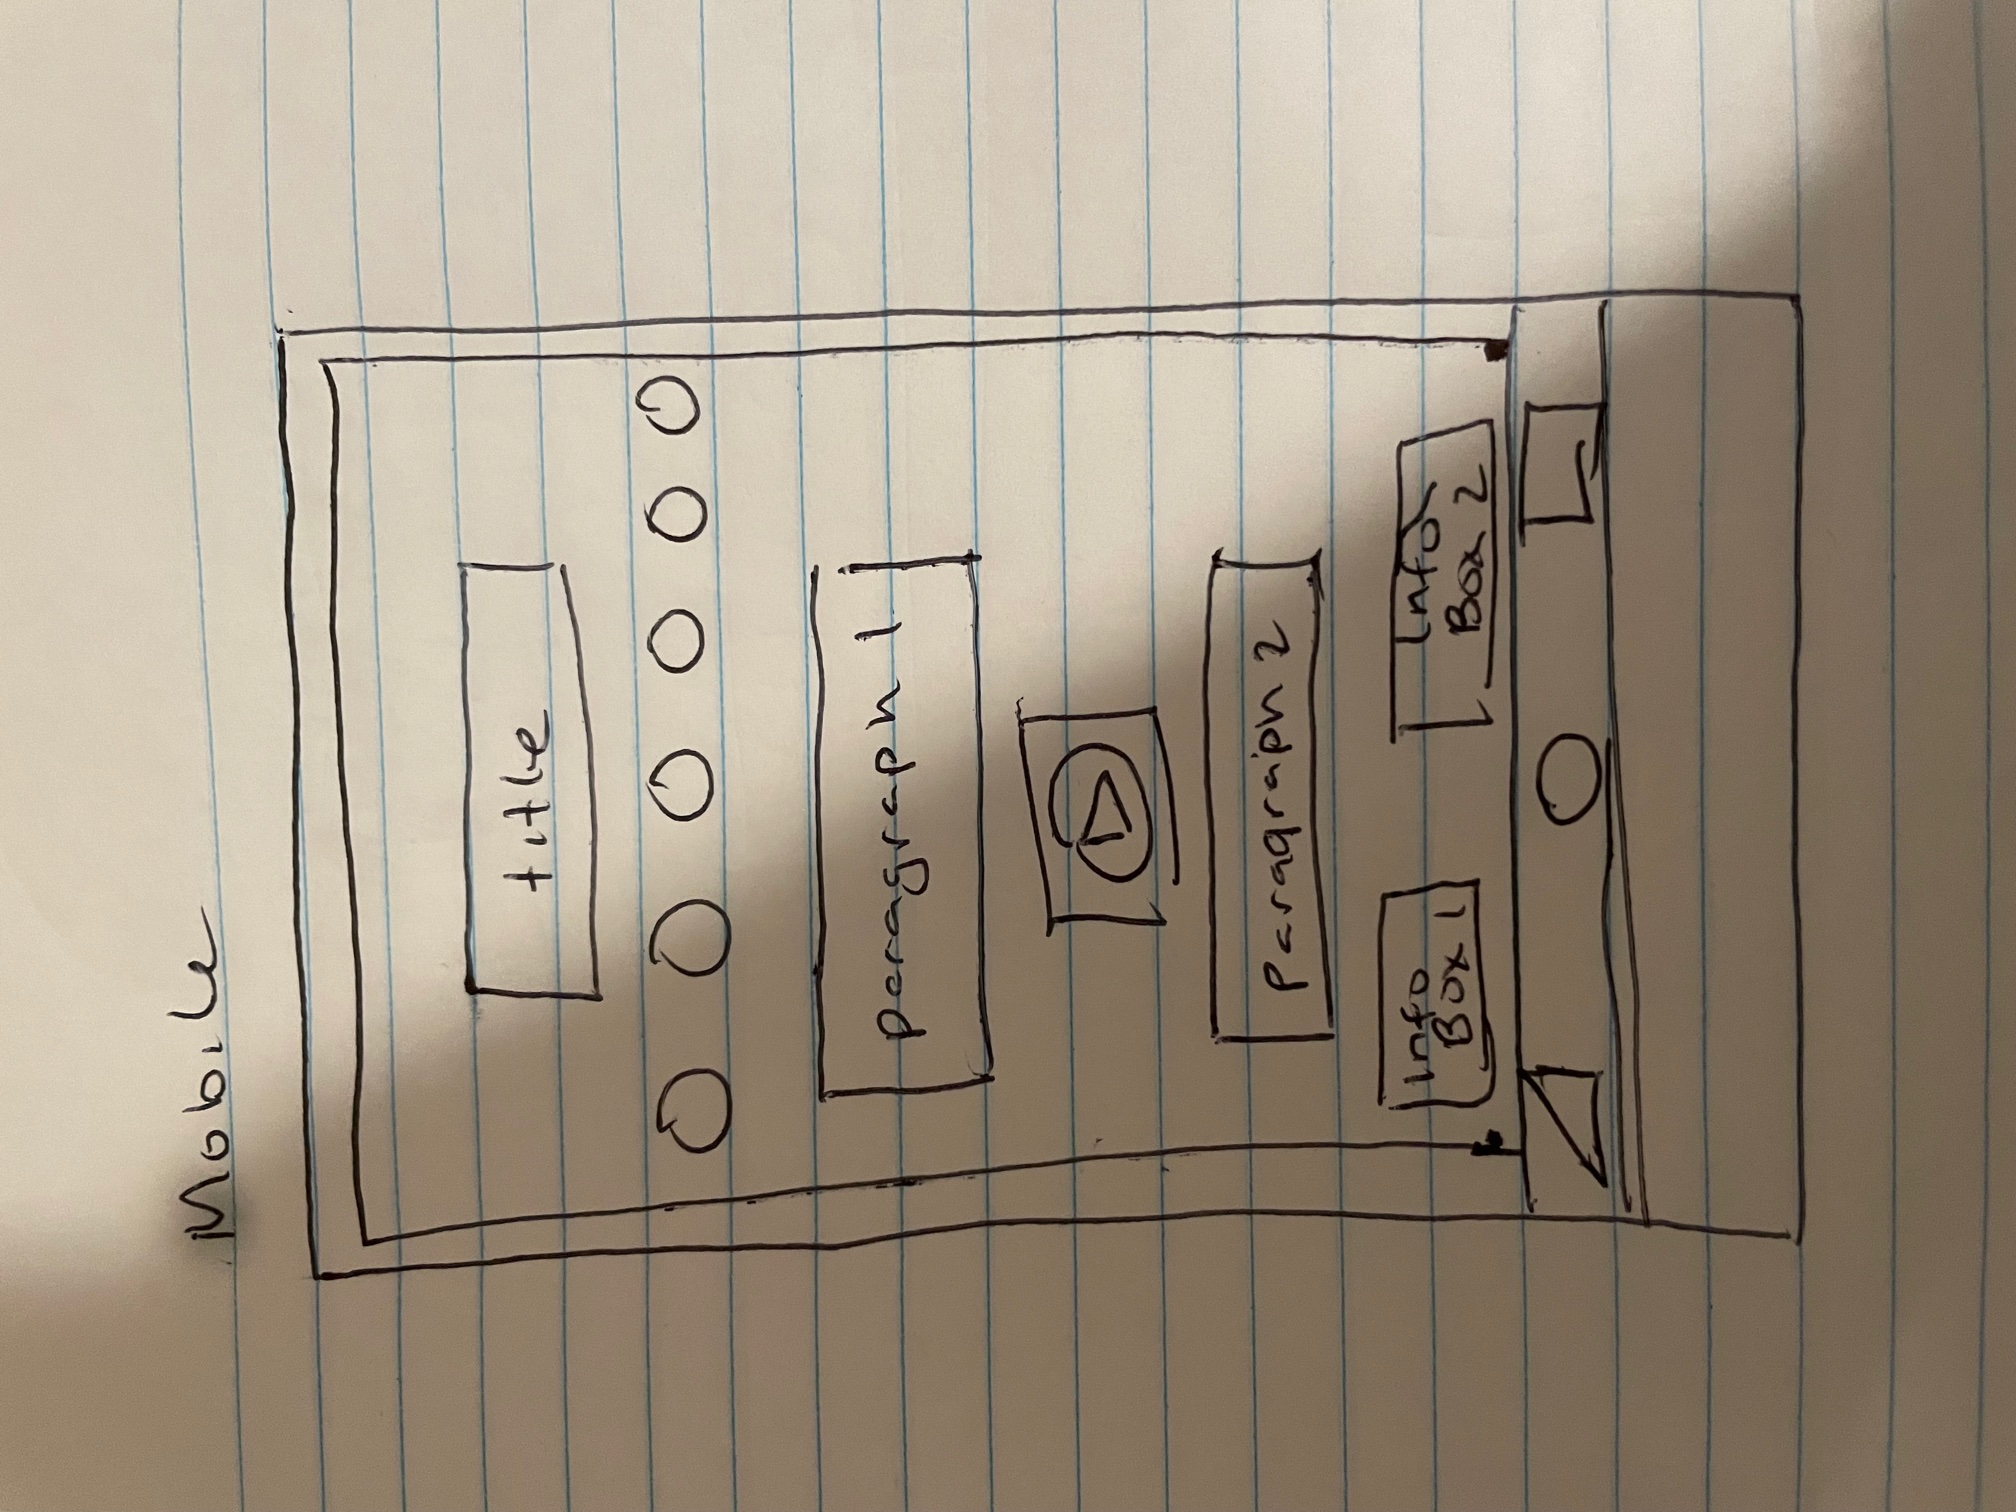 Mobile
title
paragraph 1
paragraph 2
Info
Box 1
Info
Box 2